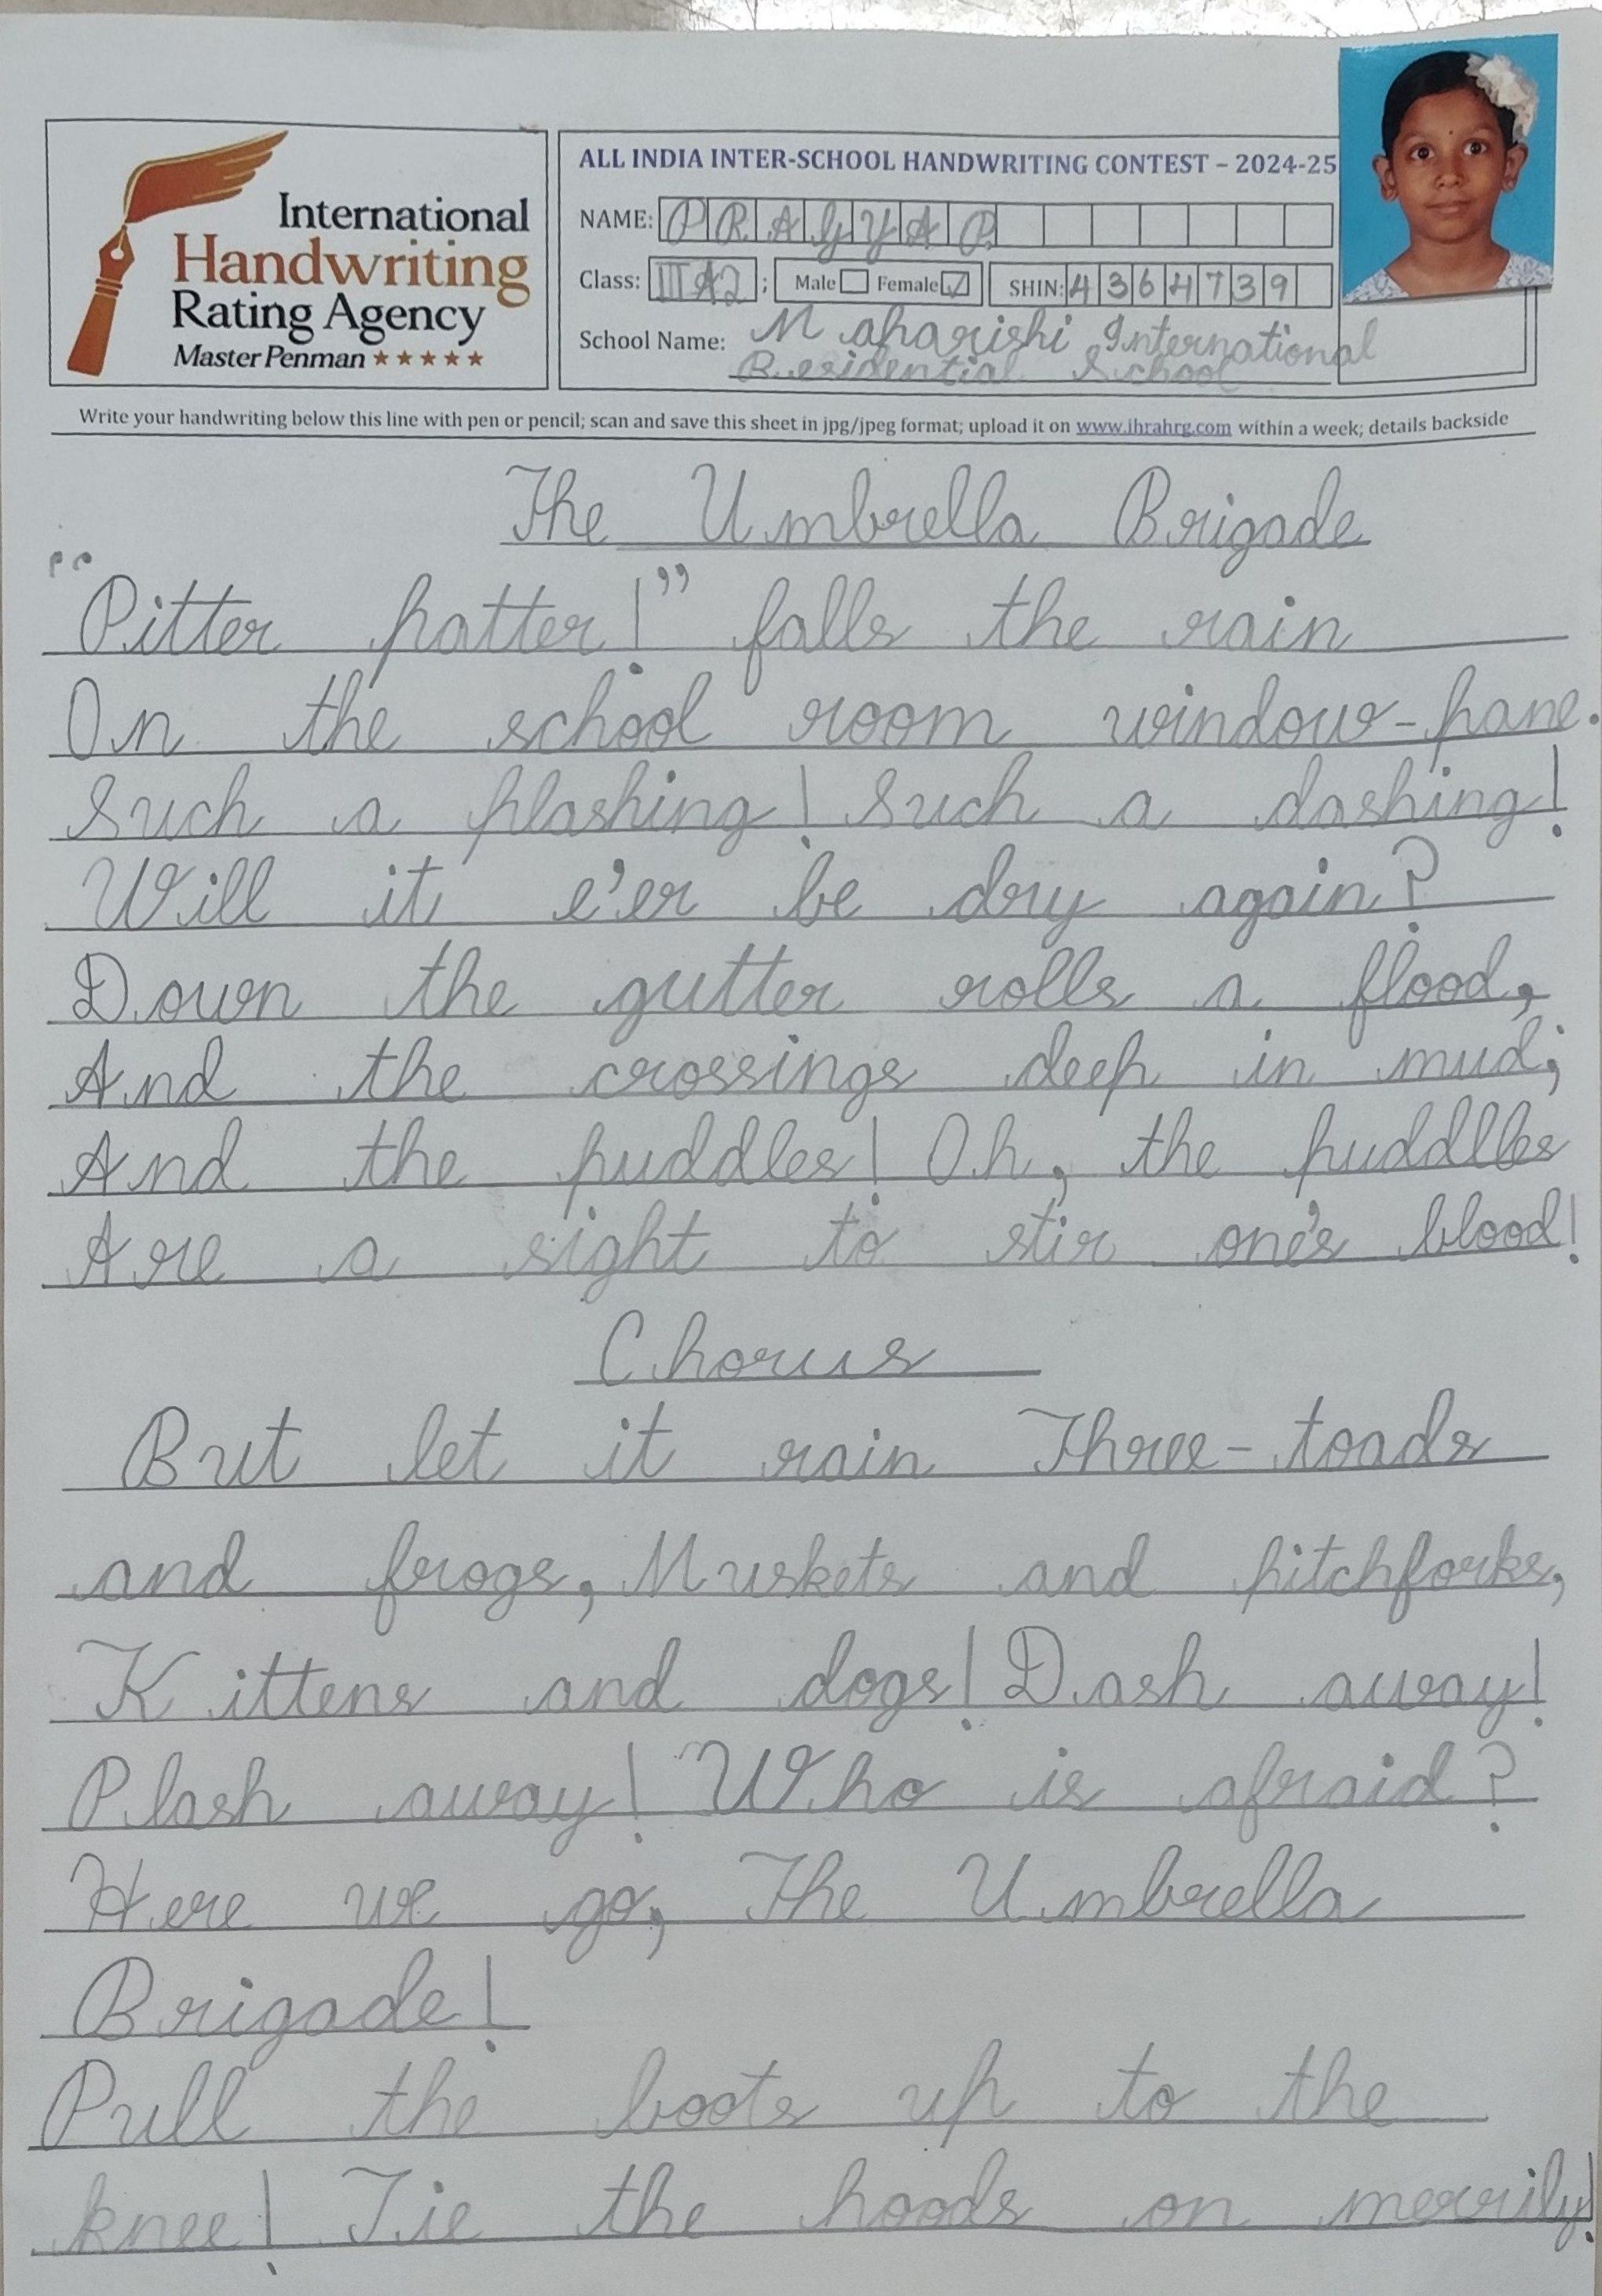 International
Handwriting
Rating Agency
Master Penman ★★★★★
ALL INDIA INTER-SCHOOL HANDWRITING CONTEST – 2024-25
NAME: PRAGYA P
Class: III A2 ; Male Female ✓ SHIN: 4364739
School Name: Maharishi International
Residential School
Write your handwriting below this line with pen or pencil; scan and save this sheet in jpg/jpeg format; upload it on www.ihrahrg.com within a week; details backside
The Umbrella Brigade
"Pitter patter!" falls the rain
On the school room window-pane.
Such a plashing! Such a dashing!
Will it e'er be dry again?
Down the gutter rolls a flood,
And the crossings deep in mud;
And the puddles! Oh, the puddlles
Are a sight to stir one's blood!
Chorus
But let it rain Three-toads
and frogs, Muskets and pitchforks,
Kittens and dogs! Dash away!
Plash away! Who is afraid?
Here we go, The Umbrella
Brigade!
Pull the boots up to the
knee! Tie the hoods on merrily!